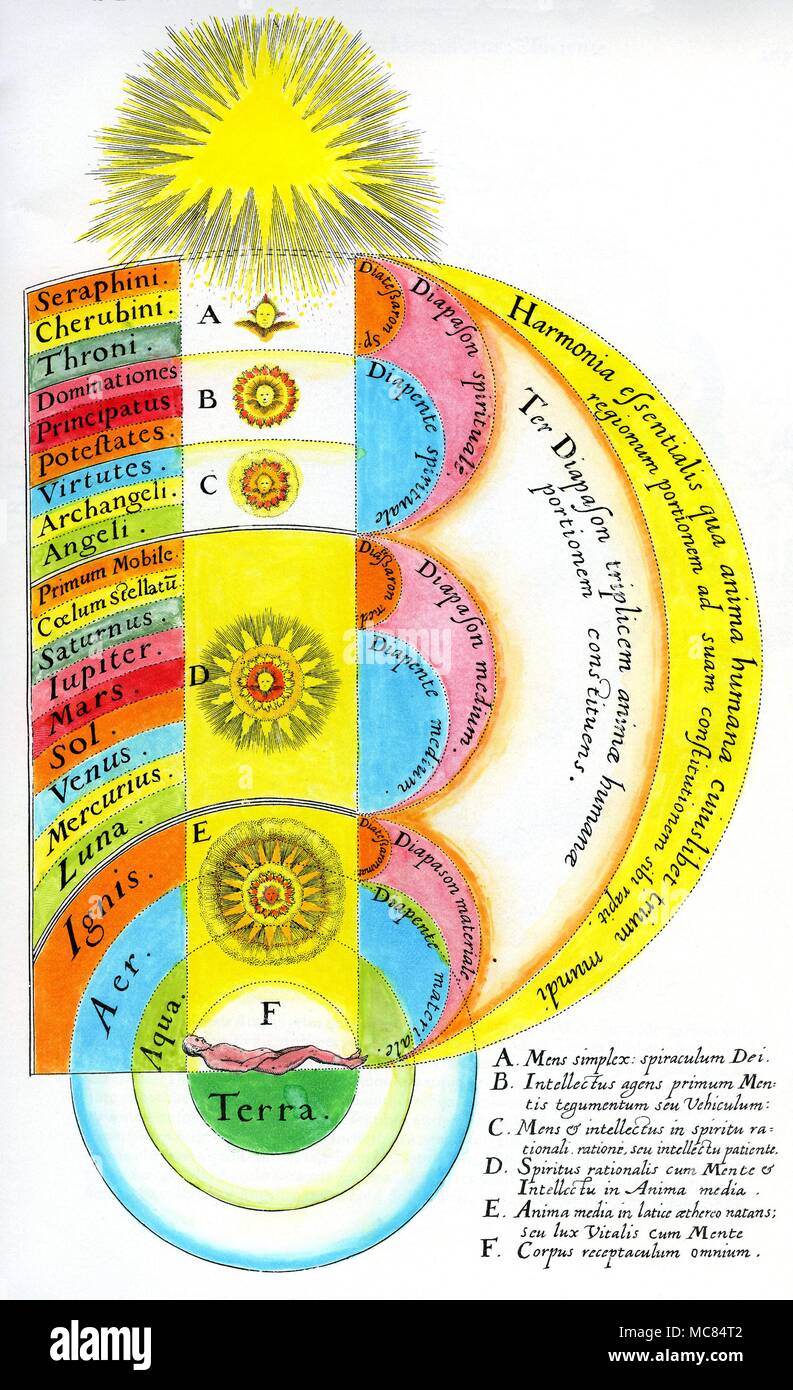 Seraphini.
Cherubini.
Throni.
Dominationes
Principatus
Poteſtates.
Virtutes.
Archangeli.
Angeli.
Primum Mobile.
Cœlum Stellatū
Saturnus.
Iupiter.
Mars.
Sol.
Venus.
Mercurius.
Luna.
Ignis.
Aer.
Aqua.
Terra.
A
B
C
D
E
F
Diateßaron sp.
Diapaſon spirituale.
Diapente spirituale
Diateßaron med.
Diapaſon medium.
Diapente medium.
Diapason materiale.
Diapente materiale.
Ter Diapaſon triplicem animæ humanæ
portionem constituens.
Harmonia eſſentialis qua anima humana cuiuslibet trium mundi
regionum portionem ad suam conſtitutionem sibi rapit.
A. Mens simplex: spiraculum Dei.
B. Intellectus agens primum Men=
tis tegumentum seu Vehiculum:
C. Mens & intellectus in spiritu ra=
tionali, ratione, seu intellectu patiente.
D. Spiritus rationalis cum Mente &
Intellectu in Anima media.
E. Anima media in latice æthereo natans;
seu lux Vitalis cum Mente
F. Corpus receptaculum omnium.
alamy
alamy
Image ID: MC84T2
www.alamy.com